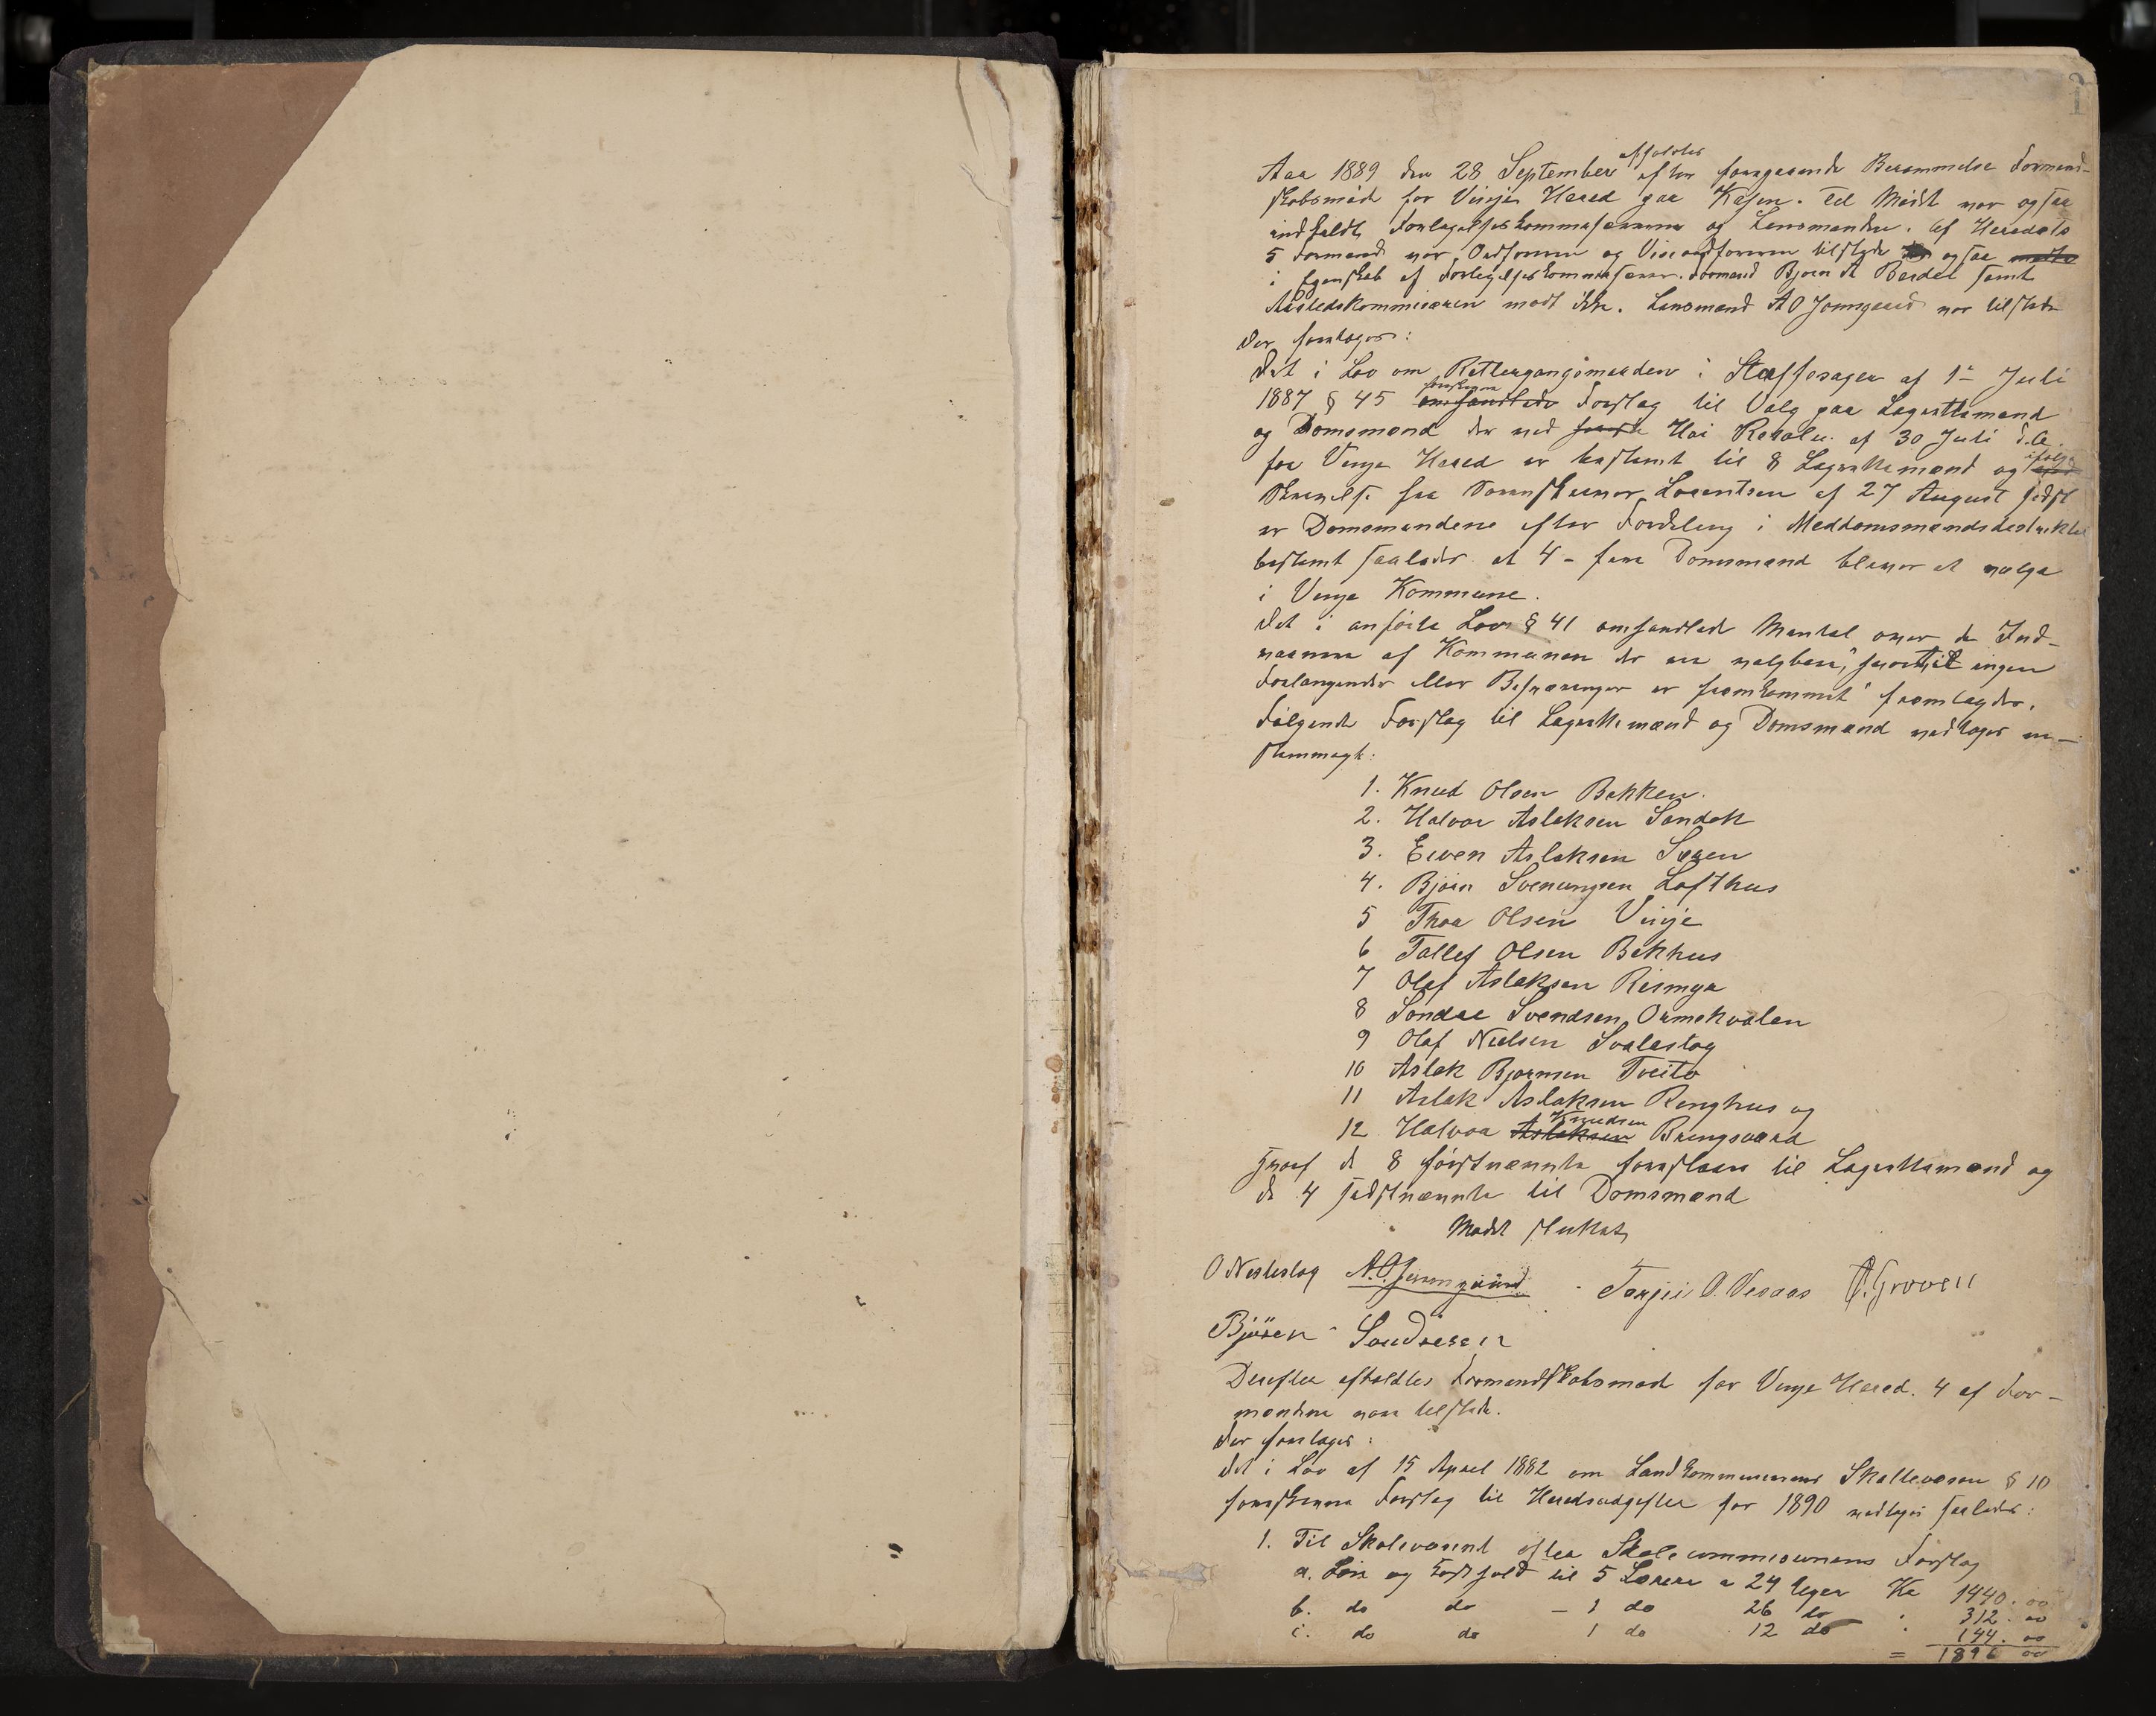 1
Aar 1889 den 28 September afholdtes efter foregaaende Berammelse Formand-
skabsmøde for Vinje Hered paa Kasen. Til Mødet var ogsaa
indkaldt Forligelseskommissærerne og Lensmanden. Af Heredets
5 Formænd var Ordføreren og Viceordføreren tilstede ogsaa
i Egenskab af Forligelseskommissærer. Formand Bjørn A Berdal samt
kommissæren mødt ikke. Lensmand A O Jamsgaard var tilstede
Der foretoges:
Det i Lov om Rettergangsmaaden i Straffesager af 1ste Juli
1887 § 45 omhandlede foreskrevne Forslag til Valg paa Lagrettemænd
og Domsmænd der ved Høi Resolu. af 30 Juli d.A.
for Vinje Hered er bestemt til 8 Lagrettemænd og ifølge
Skrivelse fra Sorenskriver Lorentsen af 27 August sidst
er Domsmændene efter Fordeling i Meddomsmandsdistriktet
bestemt saaledes at 4 - fire Domsmænd bliver at vælge
i Vinje Kommune.
Det i anførte Lovs § 41 omhandlede Mantal over de Ind-
vaanere af Kommunen der ere valgbare, hvortil ingen
Forlangender eller Besværinger er fremkommet fremlagdes.
Følgende Forslag til Lagrettemænd og Domsmænd vedtoges en-
stemmigt:
1. Knud Olsen Bakken.
2. Halvor Aslaksen Sandok
3. Eiven Aslaksen Særen
4. Bjørn Svenungsen Lofthus
5 Thor Olsen Vinje
6 Tallef Olsen Bekhus
7 Olaf Aslaksen Rismyr
8 Sondre Svendsen Ormekvalen
9 Olaf Nielsen Svalestog
10 Aslak Bjørnsen Tveito
11 Aslak Aslaksen Ringhus og
12 Halvor Aslaksen Knudsen Bringsværd
Hvoraf de 8 førstnævnte foreslaaes til Lagrettemænd og
de 4 sidstnævnte til Domsmænd
Mødet sluttet
O Neslestog A.O. Jamsgaard Torjei O. Vesaas O. Groven
Bjøren Sondresen
Derefter afholdtes Formandskabsmøde for Vinje Hered. 4 af For-
mændene vare tilstede.
Der foretoges:
Det i Lov af 15 April 1882 om Landkommunernes Skattevæsen § 10
foreskrevne Forslag til Heredsudgifter for 1890 vedtoges saaledes:
1. Til Skolevæsenet efter Skolecommissionens Forslag
a. Løn og Kosthold til 5 Lærere a 24 Uger Kr 1440.00
b. do do - 1 do 26 do " 312.00
c. do do 1 do 12 do " 144.00
= 1896 00